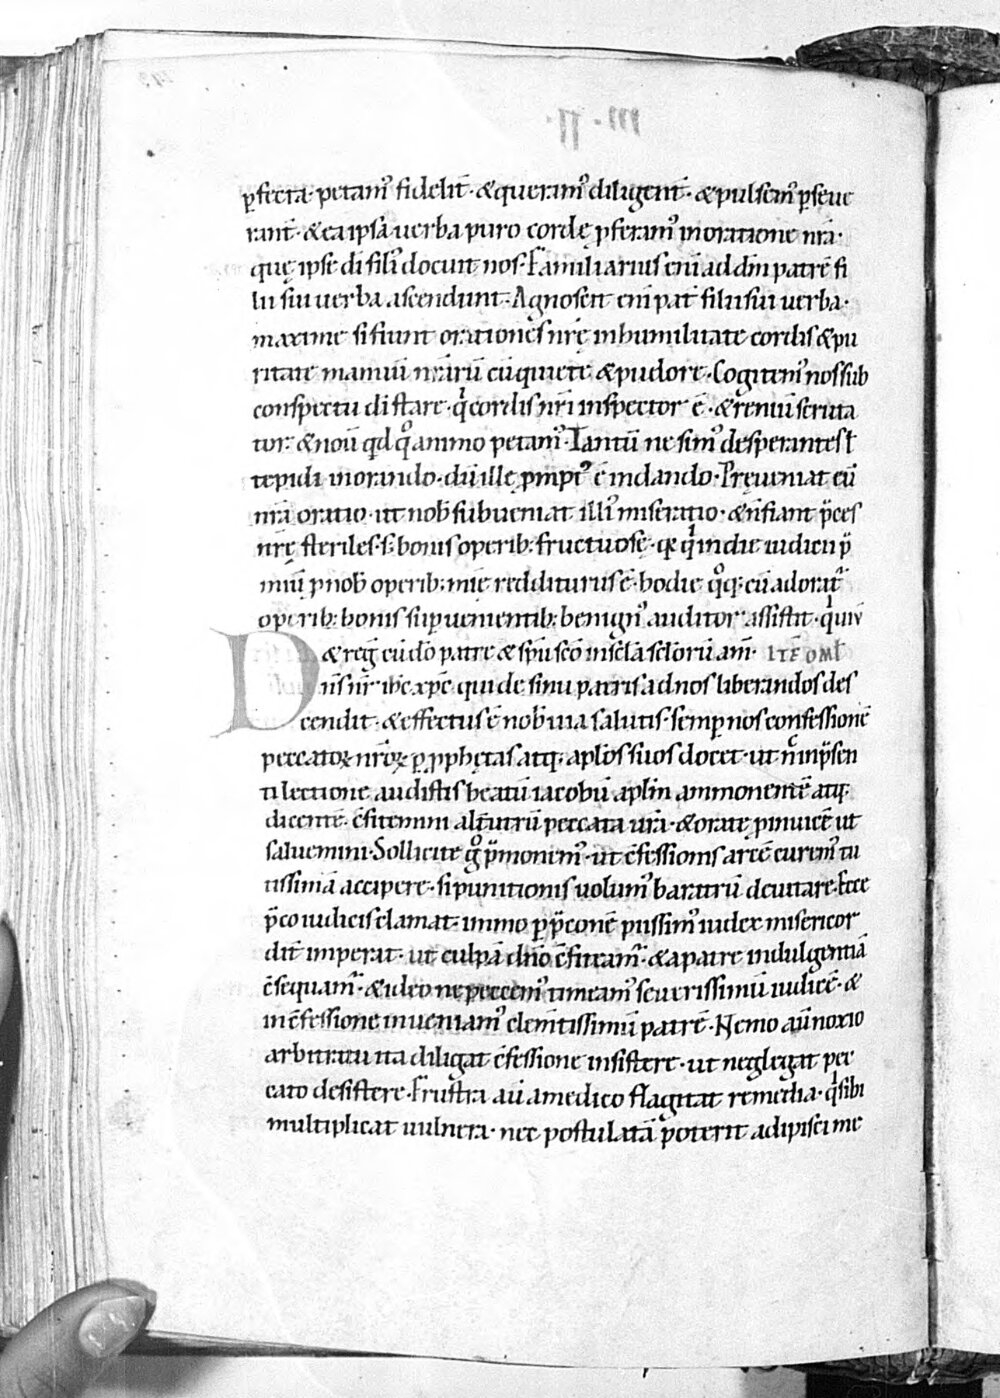 ꝑfecta· petam᷒ fidelit̄· &queram᷒ diligent̄· &pulsem᷒ ꝑseue
rant̄· &ea ipsa uerba puro corde ꝓferam᷒ inoratione nr̄a·
quę ipse di fili᷒ docuit nos· Familiarius eni᷒ ad dm̄ patrē fi
lii sui uerba ascendunt· Agnoscit eni᷒ pat̄ filii sui uerba·
maxime si fiunt orationes nr̄ę inhumilitate cordis &pu
ritate manuū nr̄arū cū quiete &pudore· Cogitem᷒ nos sub
conspectu di stare· qͥ cordis nr̄i inspector ē· &renū scruta
tor· &nouit qd qͦ animo petam᷒· Tantū ne sim᷒ desperantes ł
tepidi inorando· dū ille prompt᷒ ē indando· Pręueniat eū
nr̄a oratio· ut nob̄ subueniat illi᷒ miseratio· &n̄ fiant p̄ces
nr̄ę steriles· s; bonis operib; fructuosę· qꝫ qͥ indie iudicii p̄
miū ꝓ nob̄ operib; mīe redditurus ē· hodie qͦq; cū adorat᷒
operib; bonis supuenientib; benign᷒ auditor assistit· qͥ uiu̅
& reg̅ cū do patre & spu̅ sc̅o in sc̅la sc̅lorū am̅· ITE OML̅
Dn̅s nr̅ ih̅c xp̅c qui de sinu patris ad nos liberandos des
cendit· &effectus ē nob̄ uia salutis· semp nos confessionē
peccatoꝝ nr̅oꝝ ꝑ ꝓphętas atq; aplos suos docet· ut nc̅ inp̄sen
ti lectione audistis beatū iacobū aplm ammonentē atq;
dicentē· c̄fitemini alt̄utrū peccata ur̅a· &orate ꝓinuicē ut
saluemini· Sollicite gͦ p̄monem᷒· ut c̄fessionis arcē curem᷒ tu
tissimā accipere· si punitionis uolum᷒ baratrū deuitare· Ecce
p̄co iudicis clamat· immo ꝑ p̄conē piissim᷒ iudex misericor
dit̄ imperat· ut culpā dn̅o c̄fiteam᷒· &apatre indulgentiā
c̄sequam᷒· &ideo ne peccem᷒ timeam᷒ seuerissimū iudicē· &
in c̄fessione inueniam᷒ clem̅tissimū patrē· Nemo aū noxio
arbitratu ita diligat c̄fessione insistere· ut neglegat pec
cato desistere· Frustra aū amedico flagitat remedia· qͥ sibi
multiplicat uulnera· nec postulatā poterit adipisci me